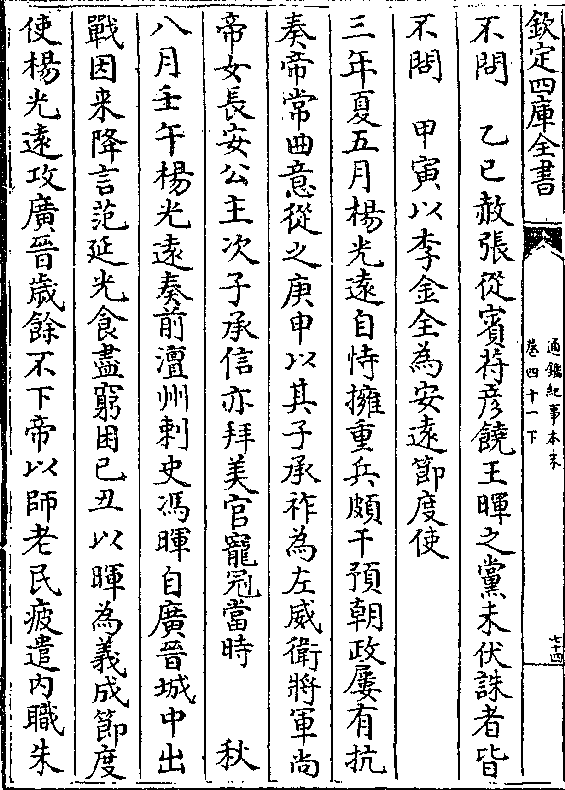 欽定四庫全書
通鑑紀事本末
卷四十一下
七十四
不問　乙巳赦張從賓苻彥饒王暉之黨未伏誅者皆
不問　甲寅以李金全為安遠節度使
三年夏五月楊光遠自恃擁重兵頗干預朝政屢有抗
奏帝常曲意從之庚申以其子承祚為左威衛將軍尚
帝女長安公主次子承信亦拜美官寵冠當時　秋
八月壬午楊光遠奏前澶州刺史馮暉自廣晉城中出
戰因來降言范延光食盡窮困己丑以暉為義成節度
使楊光遠攻廣晉歲餘不下帝以師老民疲遣內職朱